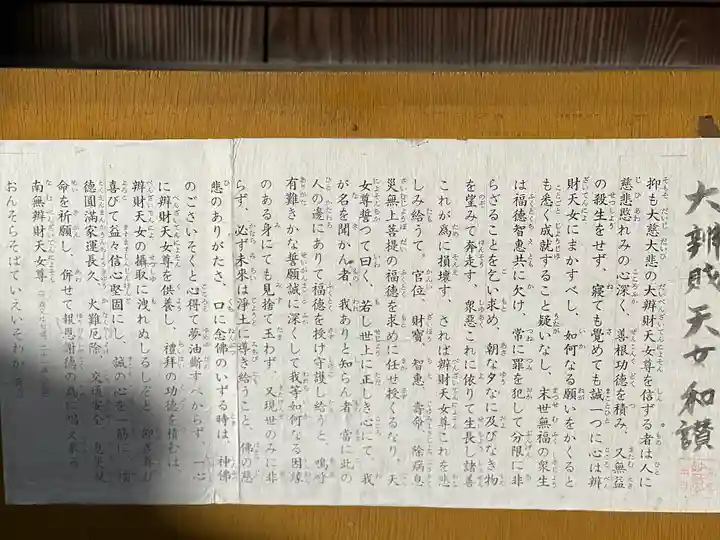 大辨財天女和讃
抑も大慈大悲の大辨財天女尊を信ずる者は人に
慈悲愍れみの心深く、善根功德を積み、又無益
の殺生をせず、寝ても覚めても誠一つに心は辨
財天女にまかすべし、如何なる願いをかくると
も悉く成就すること疑いなし、末世無福の衆生
は福德智恵共に欠け、常に罪を犯して分限に非
らざることを乞い求め、朝な夕なに及びなき物
を望みて奔走す、衆悪これに依りて生長し諸善
これが為に損壊す、されは辨財天女尊これを悲
しみ給うて。官位、財寶、智恵、壽命、除病息
災無上菩提の福德を求めに任せ授くるなり。天
女尊誓つて曰く、若し世上に正しき心にて、我
が名を聞かん者、我ありと知らん者、當に此の
人の邊にありて福德を授け守護し給うと、嗚呼
有難きかな誓願誠に深くして我等如何なる因縁
のある身にても見捨て玉わず、又現世のみに非
らず、必ず未来は浄土に導き給うこと、佛の慈
悲のありがたさ、口に念佛のいずる時は、神佛
のごさいそくと心得て夢油斷すべからず、一心
に辨財天女尊を供養し、禮拜の功德を積むは、
辨財天女の攝取に洩れぬしるしぞと、仰ぎ尊び
喜びて益々信心堅固にし、誠の心を一筋に、福
德圓満家運長久、火難厄除、交通安全、息災延
命を祈願し、併せて報恩謝德の為に唱え奉る
南無辨財天女尊
おんそらそばていえいそわか